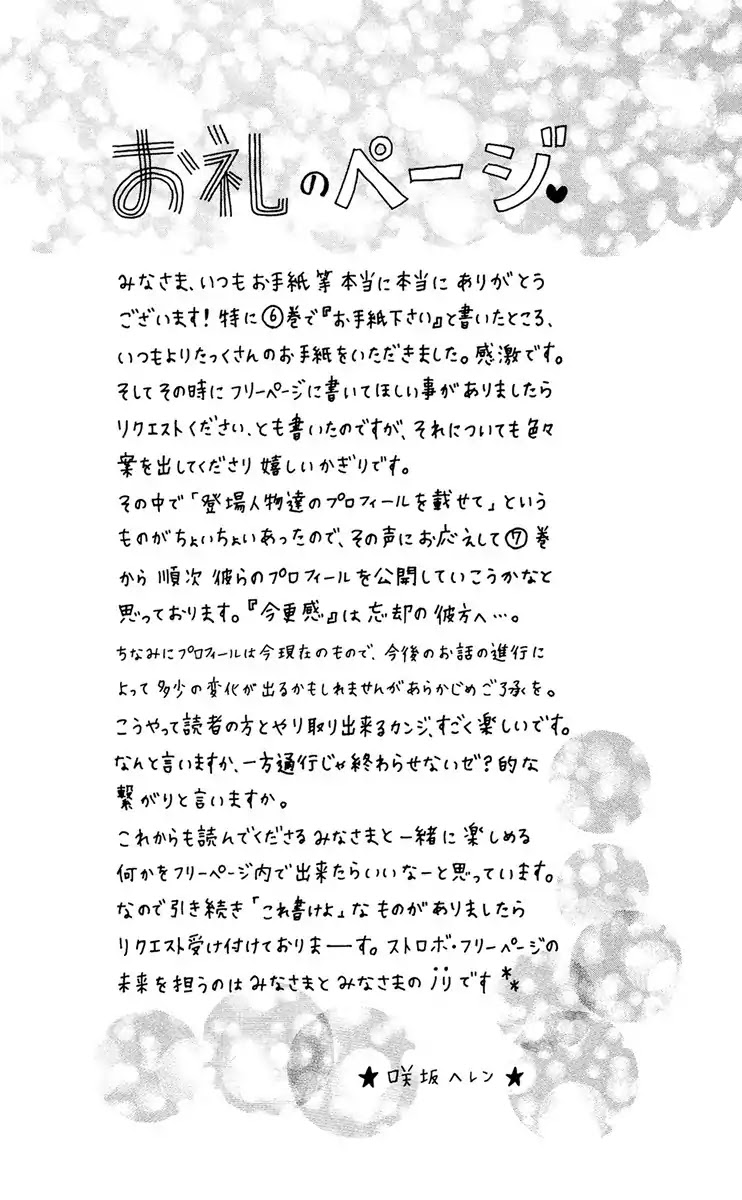 お礼のページ♥
みなさま、いつもお手紙等本当に本当にありがとう
ございます!特に⑥巻で『お手紙下さい』と書いたところ、
いつもよりたっくさんのお手紙をいただきました。感激です。
そしてその時にフリーページに書いてほしい事がありましたら
リクエストください、とも書いたのですが、それについても色々
案を出してくださり嬉しいかぎりです。
その中で「登場人物達のプロフィールを載せて」という
ものがちょいちょいあったので、その声にお応えして⑦巻
から順次彼らのプロフィールを公開していこうかなと
思っております。『今更感』は忘却の彼方へ…。
ちなみにプロフィールは今現在のもので、今後のお話の進行に
よって多少の変化が出るかもしれませんがあらかじめご了承を。
こうやって読者の方とやり取り出来るカンジ、すごく楽しいです。
なんと言いますか、一方通行じゃ終わらせないゼ?的な
繋がりと言いますか。
これからも読んでくださるみなさまと一緒に楽しめる
何かをフリーページ内で出来たらいいなーと思っています。
なので引き続き「これ書けよ」なものがありましたら
リクエスト受け付けておりまーーす。ストロボ・フリーページの
未来を担うのはみなさまとみなさまのです
★咲坂ヘレン★